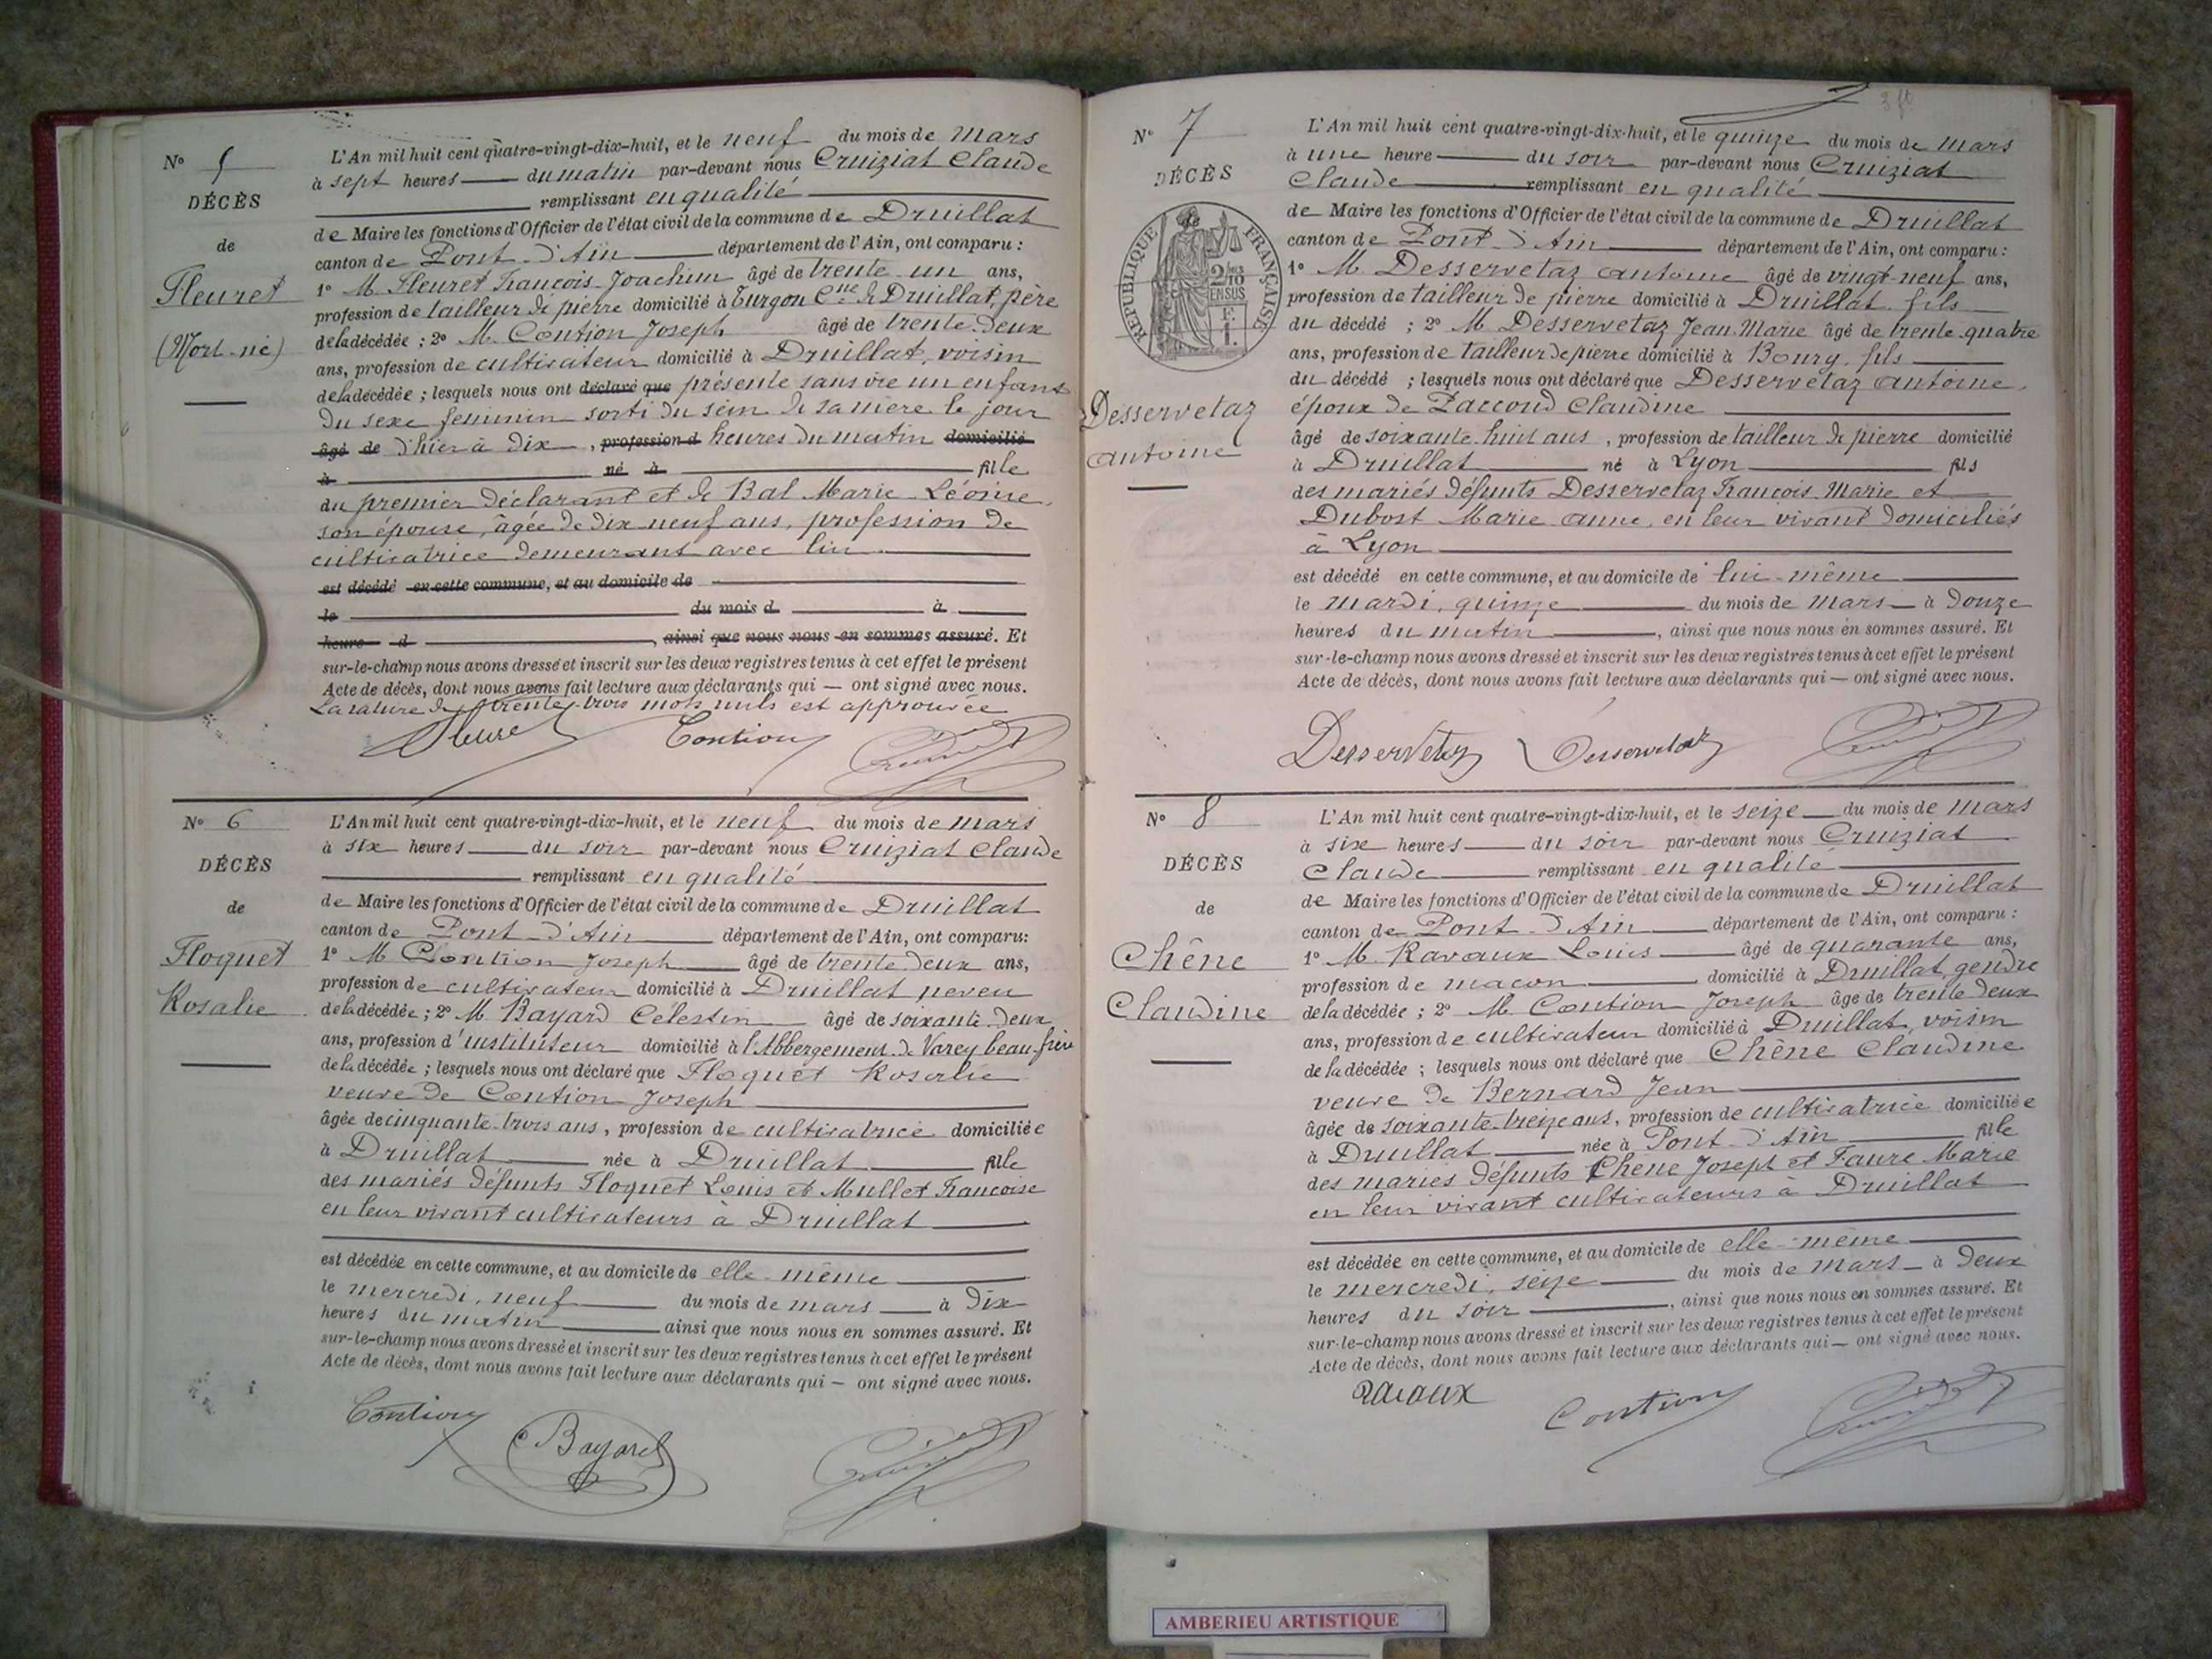 N° 5
DÉCÈS
de
Fleuret
(Mort-né)
L'An mil huit cent quatre-vingt-dix-huit, et le neuf du mois de mars
à sept heures du matin par-devant nous Cruiziat Claude
remplissant en qualité
de Maire les fonctions d'Officier de l'état civil de la commune de Druillat
canton de Pont-d'Ain département de l'Ain, ont comparu :
1° M. Fleuret François-Joachim âgé de trente-un ans,
profession de tailleur de pierre domicilié à Turgon Cne de Druillat, père
de la décédée ; 2° M. Contion Joseph âgé de trente-deux
ans, profession de cultivateur domicilié à Druillat, voisin
de la décédée ; lesquels nous ont déclaré que présenté sans vie un enfant
du sexe féminin sorti du sein de sa mère le jour
âgé de d'hier à dix, profession d heures du matin domicilié
à né à fille
du premier déclarant et de Bal Marie-Léonie,
son épouse, âgée de dix-neuf ans, profession de
cultivatrice demeurant avec lui.
est décédé en cette commune, et au domicile de
le du mois d à
heure d , ainsi que nous nous en sommes assuré. Et
sur-le-champ nous avons dressé et inscrit sur les deux registres tenus à cet effet le présent
Acte de décès, dont nous avons fait lecture aux déclarants qui — ont signé avec nous.
La rature de trente-trois mots nuls est approuvée
Fleuret Contion
N° 6
DÉCÈS
de
Floquet
Rosalie
L'An mil huit cent quatre-vingt-dix-huit, et le neuf du mois de mars
à six heures du soir par-devant nous Cruiziat Claude
remplissant en qualité
de Maire les fonctions d'Officier de l'état civil de la commune de Druillat
canton de Pont-d'Ain département de l'Ain, ont comparu:
1° M. Contion Joseph âgé de trente-deux ans,
profession de cultivateur domicilié à Druillat neveu
de la décédée ; 2° M. Bayard Célestin âgé de soixante-deux
ans, profession d'instituteur domicilié à l'Abbergement-de-Varey beau-frère
de la décédée ; lesquels nous ont déclaré que Floquet Rosalie
veuve de Contion Joseph
âgée de cinquante-trois ans, profession de cultivatrice domiciliée
à Druillat née à Druillat fille
des mariés défunts Floquet Louis et Mullet Françoise
en leur vivant cultivateurs à Druillat
est décédée en cette commune, et au domicile de elle-même
le mercredi, neuf du mois de mars à dix
heures du matin ainsi que nous nous en sommes assuré. Et
sur-le-champ nous avons dressé et inscrit sur les deux registres tenus à cet effet le présent
Acte de décès, dont nous avons fait lecture aux déclarants qui — ont signé avec nous.
Contion Bayard
N° 7
DÉCÈS
RÉPUBLIQUE FRANÇAISE
2/10
EN SUS
F.
1.
Desservetaz
Antoine
L'An mil huit cent quatre-vingt-dix-huit, et le quinze du mois de mars
à une heure du soir par-devant nous Cruiziat
Claude remplissant en qualité
de Maire les fonctions d'Officier de l'état civil de la commune de Druillat
canton de Pont-d'Ain département de l'Ain, ont comparu :
1° M. Desservetaz Antoine âgé de vingt-neuf ans,
profession de tailleur de pierre domicilié à Druillat fils
du décédé ; 2° M. Desservetaz Jean-Marie âgé de trente-quatre
ans, profession de tailleur de pierre domicilié à Bourg, fils
du décédé ; lesquels nous ont déclaré que Desservetaz Antoine,
époux de Paccoud Claudine
âgé de soixante-huit ans, profession de tailleur de pierre domicilié
à Druillat né à Lyon fils
des mariés défunts Desservetaz François-Marie et
Dubost Marie-Anne, en leur vivant domiciliés
à Lyon
est décédé en cette commune, et au domicile de lui-même
le mardi, quinze du mois de mars à douze
heures du matin, ainsi que nous nous en sommes assuré. Et
sur-le-champ nous avons dressé et inscrit sur les deux registres tenus à cet effet le présent
Acte de décès, dont nous avons fait lecture aux déclarants qui — ont signé avec nous.
Desservetaz Desservetaz
N° 8
DÉCÈS
de
Chêne
Claudine
L'An mil huit cent quatre-vingt-dix-huit, et le seize du mois de mars
à six heures du soir par-devant nous Cruiziat
Claude remplissant en qualité
de Maire les fonctions d'Officier de l'état civil de la commune de Druillat
canton de Pont-d'Ain département de l'Ain, ont comparu :
1° M. Ravaux Louis âgé de quarante ans,
profession de maçon domicilié à Druillat, gendre
de la décédée ; 2° M. Contion Joseph âgé de trente-deux
ans, profession de cultivateur domicilié à Druillat, voisin
de la décédée ; lesquels nous ont déclaré que Chêne Claudine
veuve de Bernard Jean
âgée de soixante-treize ans, profession de cultivatrice domiciliée
à Druillat née à Pont-d'Ain fille
des mariés défunts Chêne Joseph et Faure Marie
en leur vivant cultivateurs à Druillat
est décédée en cette commune, et au domicile de elle-même
le mercredi, seize du mois de mars à deux
heures du soir, ainsi que nous nous en sommes assuré. Et
sur-le-champ nous avons dressé et inscrit sur les deux registres tenus à cet effet le présent
Acte de décès, dont nous avons fait lecture aux déclarants qui — ont signé avec nous.
Ravaux Contion
AMBERIEU ARTISTIQUE